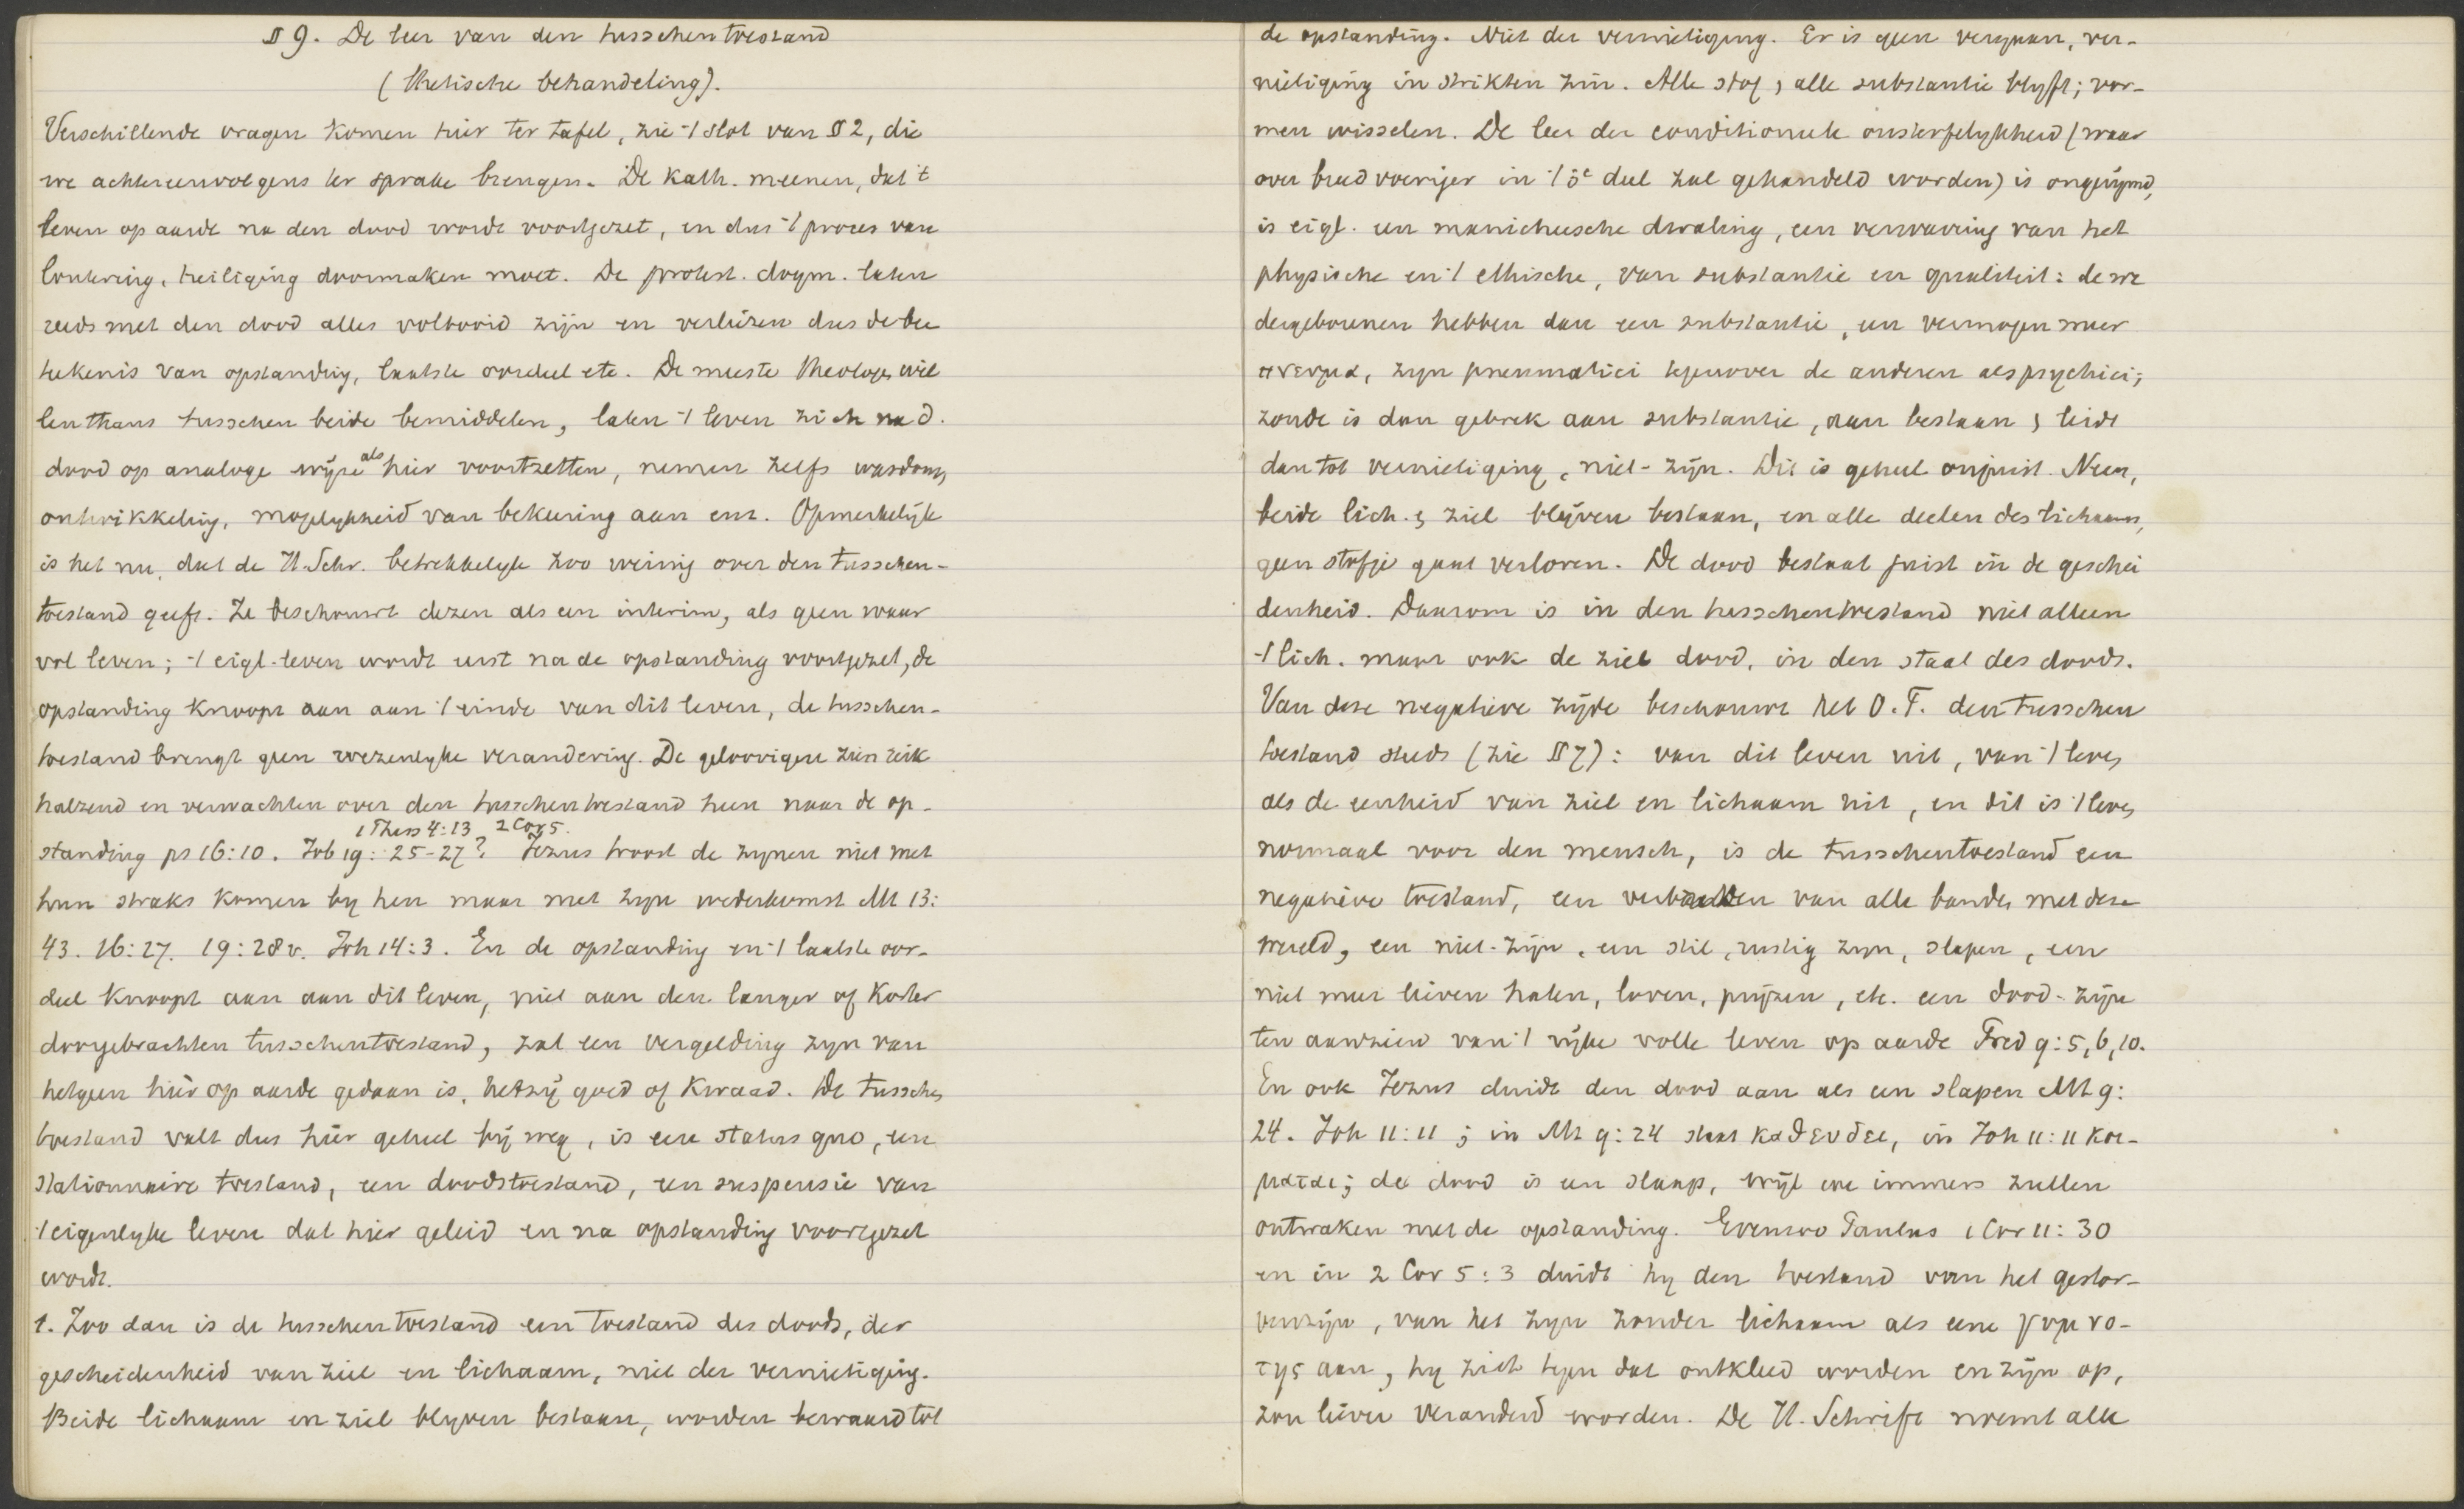 § 9. De leer van den tusschentoestand
(Thetische behandeling).
Verschillende vragen komen hier ter tafel, zie 't slot van § 2, die
we achtereenvolgens ter sprake brengen. De Kath. meenen, dat 't
leven op aarde na den dood wordt voortgezet, en dus 't proces van
loutering, heiliging doormaken moet. De protest. dogm. laten
reeds met den dood alles voltooid zijn en verliezen dus de be
teekenis van opstanding, laatste oordeel etc. De meeste theologen wil
len thans tusschen beide bemiddelen, laten 't leven zich na d.
dood op analoge wijze als hier voortzetten, nemen zelfs wasdom,
ontwikkeling, mogelykheid van bekeering aan enz. Opmerkelijk
is het nu, dat de H. Schr. betrekkelyk zoo weinig over den tusschen-
toestand geeft. Ze beschouwt dezen als een interim, als geen waar
vol leven; 't eigl. leven wordt eerst na de opstanding voortgezet, de
opstanding knoopt aan aan 't einde van dit leven, de tusschen-
toestand brengt geen wezenlyke verandering. De geloovigen zien reik
halzend en verwachten over den tusschentoestand heen naar de op-
1 Thess 4:13 2 Cor 5.
standing ps 16:10. Job 19:25-27? Jezus troost de zynen niet met
hun straks komen by hem maar met zyn wederkomst Mt 13:
43. 16:27. 19:28 v. Joh 14:3. En de opstanding en 't laatste oor-
deel knoopt aan aan dit leven, niet aan den langer of korter
doorgebrachten tusschentoestand, zal een vergelding zyn van
hetgeen hier op aarde gedaan is, hetzij goed of kwaad. De tusschen
toestand valt dus hier geheel bij weg, is een status quo, een
stationnaire toestand, een doodstoestand, een suspensie van
't eigenlyke leven dat hier geleid en na opstanding voortgezet
wordt.
1. Zoo dan is de tusschentoestand een toestand des doods, der
gescheidenheid van ziel en lichaam, niet der vernietiging.
Beide lichaam en ziel blyven bestaan, worden bewaard tot
de opstanding. Niet der vernietiging. Er is geen vergaan, ver-
nietiging in strikten zin. Alle stof, alle substantie blyft; vor-
men wisselen. De leer der conditioneele onsterfelykheid (waar
over breedvoeriger in 't 5e deel zal gehandeld worden) is ongerijmd,
is eigl. een manicheesche dwaling, een verwarring van het
physische en 't ethische, van substantie en qualiteit: de we
dergeborenen hebben dan een substantie, een vermogen meer
πνευμα, zyn pneumatici tegenover de anderen als psychici;
zonde is dan gebrek aan substantie, aan bestaan, & leidt
dan tot vernietiging, niet-zijn. Dit is geheel onjuist. Neen,
beide lich. & ziel blijven bestaan, en alle deelen des lichaams,
geen stofje gaat verloren. De dood bestaat juist in de geschei
denheid. Daarom is in den tusschentoestand niet alleen
't lich. maar ook de ziel dood, in den staat des doods.
Van deze negatieve zijde beschouwt het O.T. den tusschen
toestand steeds (zie § 7): van dit leven uit, van 't leven
als de eenheid van ziel en lichaam uit, en dit is 't leven
normaal voor den mensch, is de tusschentoestand een
negatieve toestand, een van alle banden met deze
wereld, een niet-zijn, een stil, rustig zyn, slapen, een
niet meer lieven haten, loven, prijzen, etc. een dood-zijn
ten aanzien van 't rijke volle leven op aarde Pred 9:5,6,10.
En ook Jezus duidt den dood aan als een slapen Mt 9:
24. Joh 11:11; in Mt 9:24 staat καθευδει, in Joh 11:11 κοι-
μαται; de dood is een slaap, wijl we immers zullen
ontwaken met de opstanding. Evenzoo Paulus 1 Cor 11:30
en in 2 Cor 5:3 duidt hy den toestand van het gestor-
venzijn, van het zyn zonder lichaam als eene γυμνο-
της aan, hy zich tegen dat ontkleed worden en zijn op,
zou liever veranderd worden. De H. Schrift noemt alle